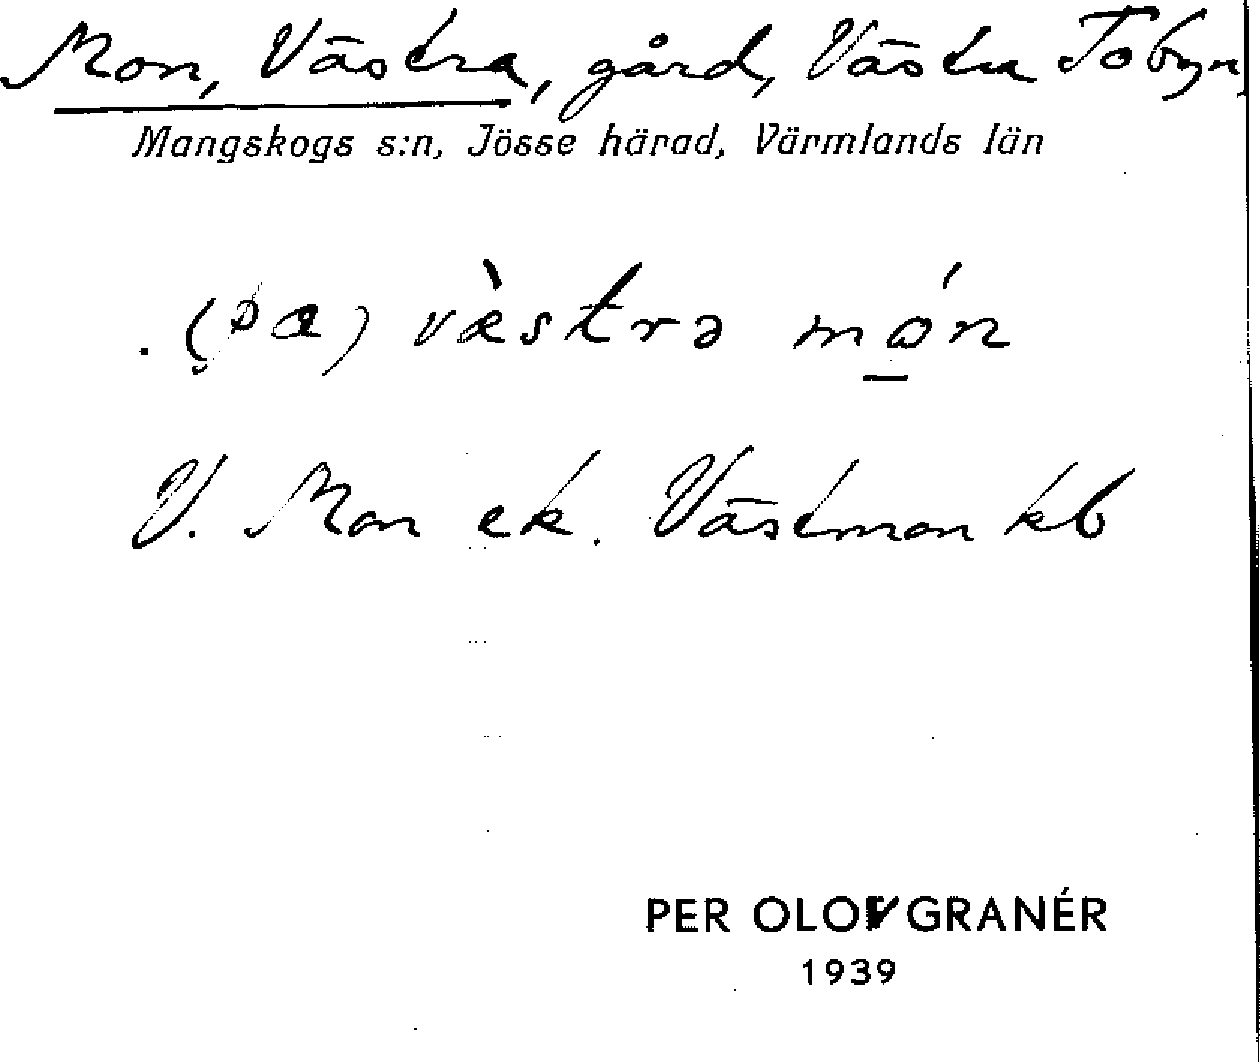 Mon, Västra, gård, Västra Tobyn,
Mangskogs s:n, Jösse härad, Värmlands län
(pα) væ̀strə mǿn
V. Mon ek. Västmon kb
PER OLOV GRANÉR
1939